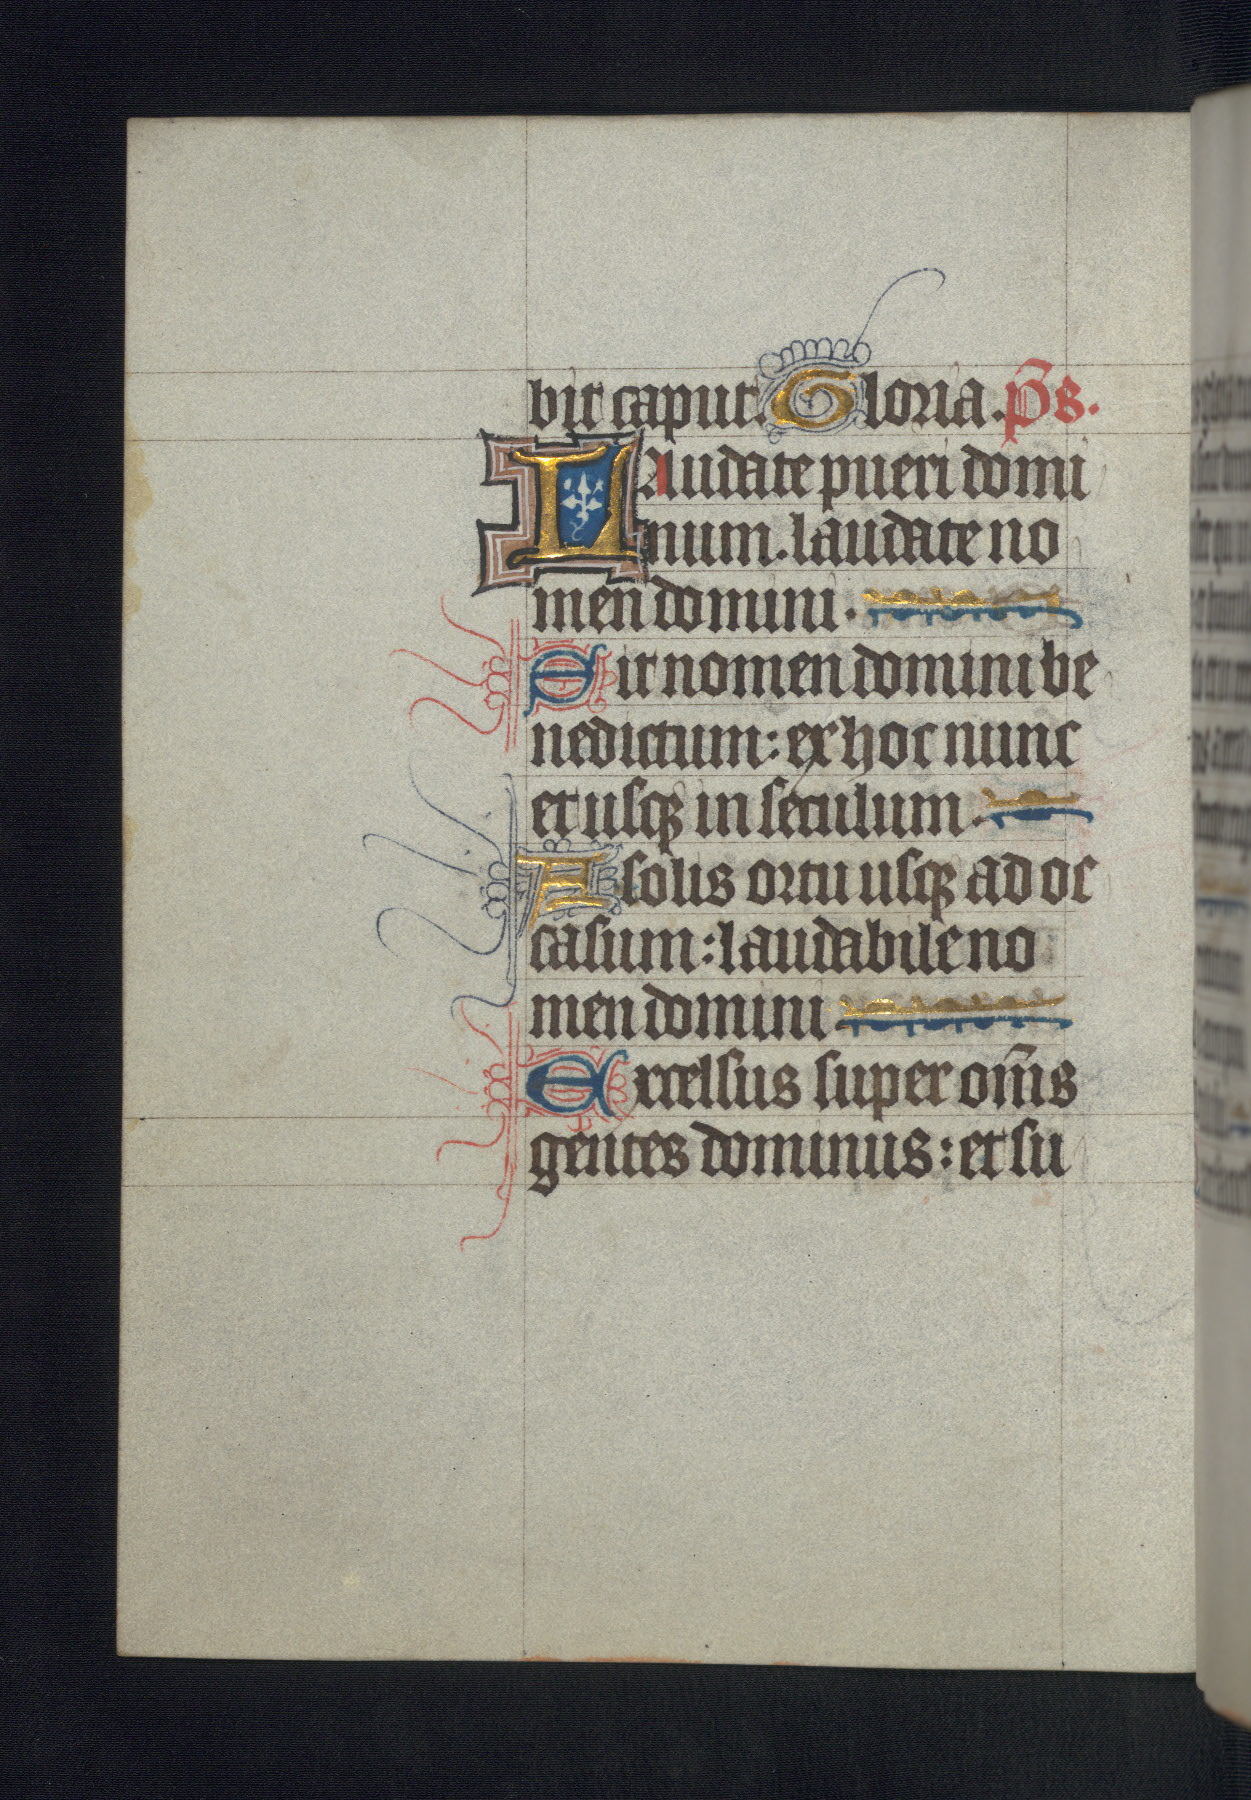 bit caput. Gloria. p̄s.
Laudate pueri domi
num. laudate no
men domini.
Sit nomen domini be
nedictum: ex hoc nunc
et usqꝫ in seculum.
A solis ortu usqꝫ ad oc
casum: laudabile no
men domini
Excelsus super om̄s
gentes dominus: et su